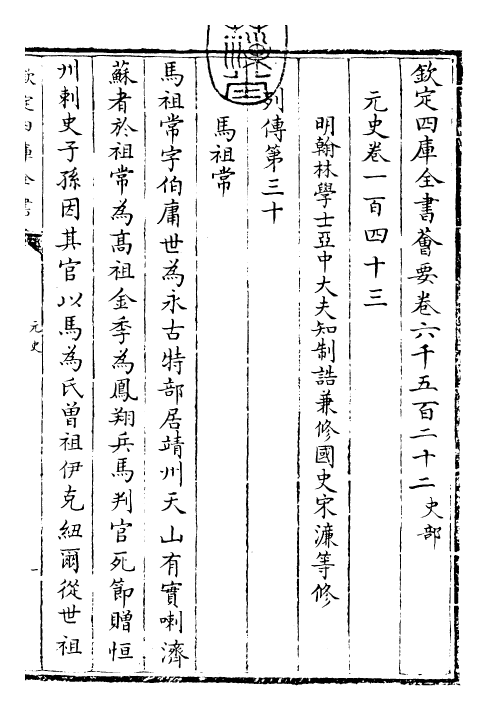 欽定四庫全書薈要卷六千五百二十二 史部
元史卷一百四十三
明翰林學士亞中大夫知制誥兼修國史宋濂等修
列傳第三十
馬祖常
馬祖常字伯庸世為永古特部居靖州天山有實喇濟
蘇者於祖常為髙祖金季為鳳翔兵馬判官死節贈恒
州刺史子孫因其官以馬為氏曾祖伊克紐爾從世祖
欽定四庫全書
元史
一